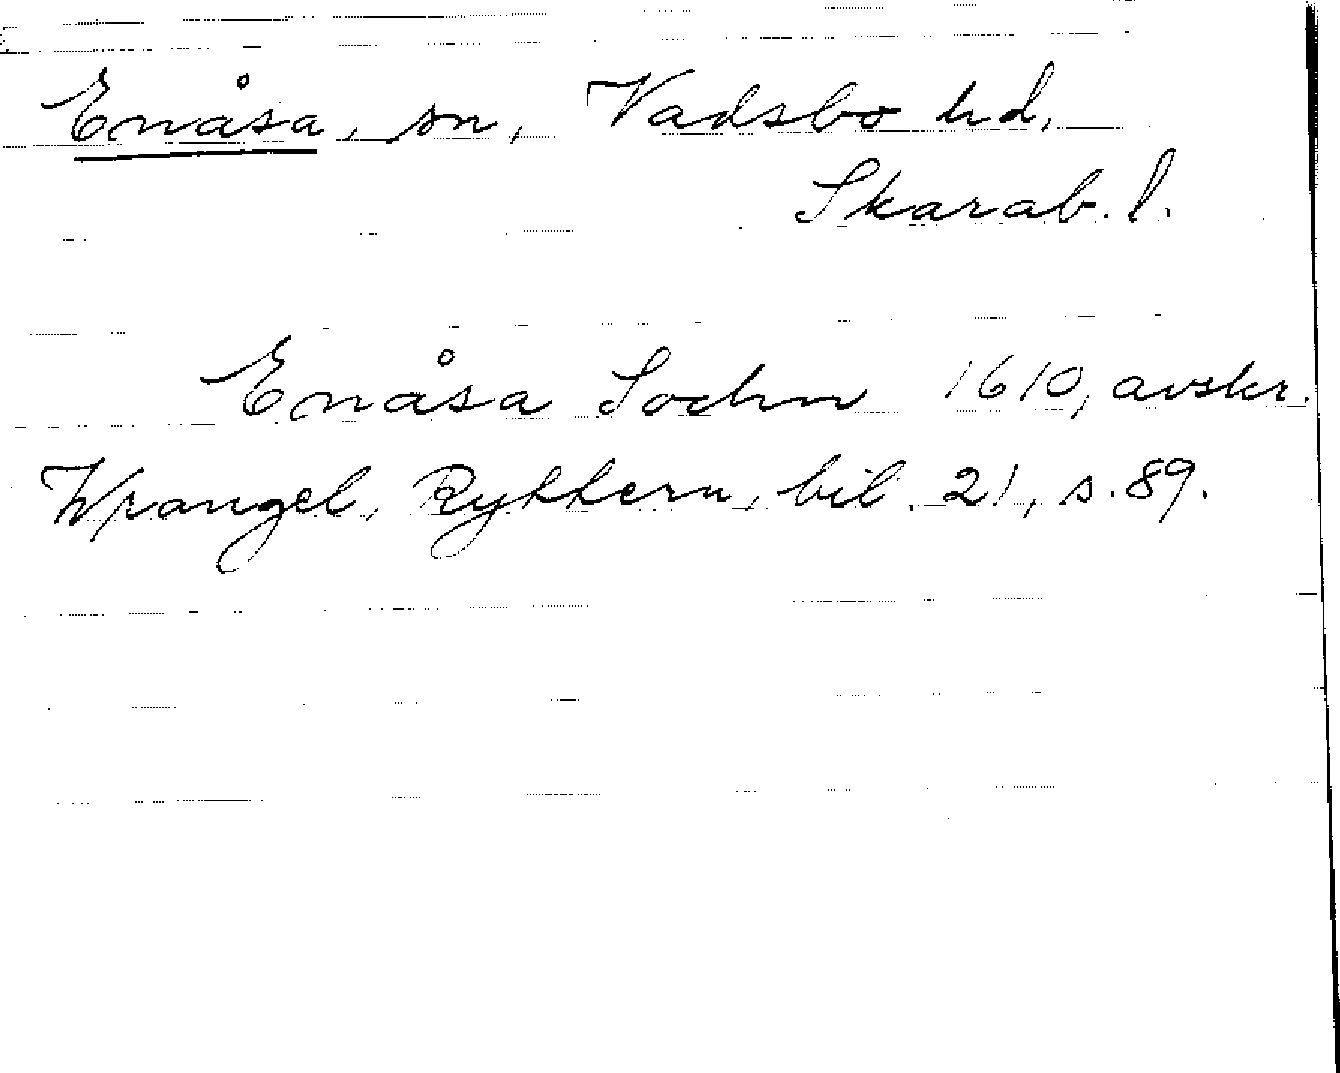 Enåsa, sn, Vadsbo hd,
Skarab. l.
Enåsa Sochn 1610, avskr.
Wrangel, Rytkern, bil. 21, s. 89.